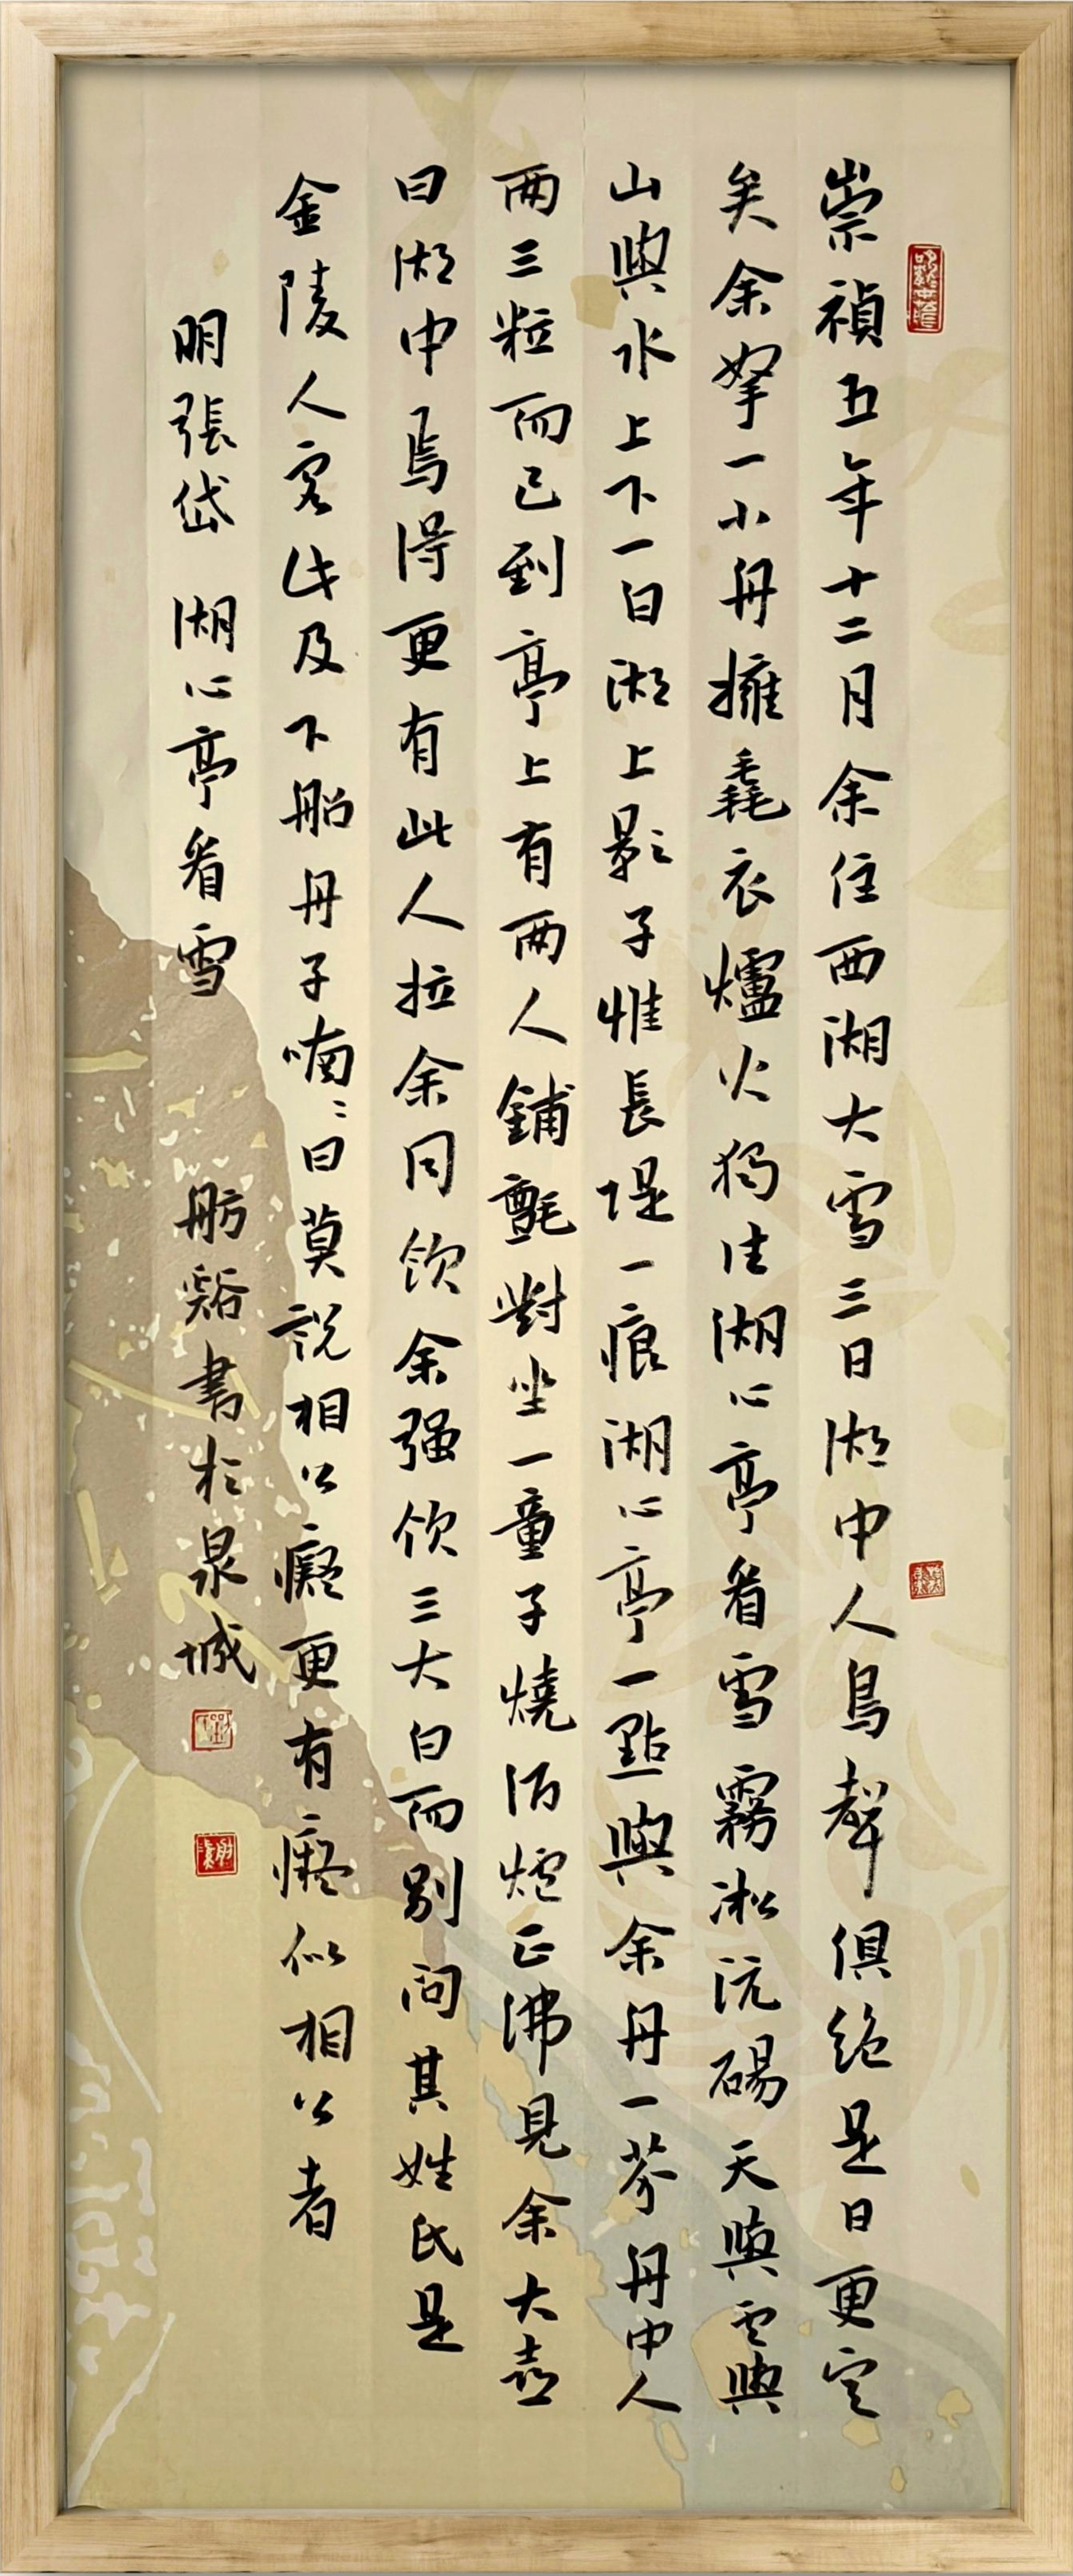 崇禎五年十二月余住西湖大雪三日湖中人鳥聲俱絕是日更定
矣余拏一小舟擁毳衣爐火獨往湖心亭看雪霧凇沆碭天與雲與
山與水上下一白湖上影子惟長堤一痕湖心亭一點與余舟一芥舟中人
兩三粒而已到亭上有兩人鋪氈對坐一童子燒酒爐正沸見余大喜
曰湖中焉得更有此人拉余同飲余强飲三大白而別問其姓氏是
金陵人客此及下船舟子喃〻曰莫說相公癡更有癡似相公者
明張岱 湖心亭看雪 舫谿書於泉城